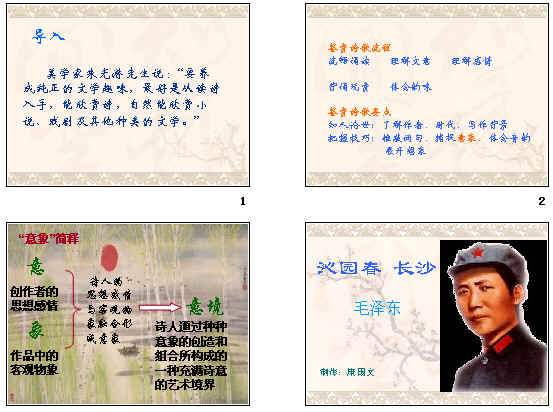 导入
美学家朱光潜先生说:“要养
成纯正的文学趣味,最好是从读诗
入手,能欣赏诗,自然能欣赏小
说、戏剧及其他种类的文学。”
1
鉴赏诗歌流程
流畅诵读 理解文意 理解感情
背诵玩赏 体会韵味
鉴赏诗歌要点
知人论世:了解作者、时代、写作背景
把握技巧:推敲词句、捕捉意象、体会音韵
展开想象
2
“意象”简释
意
创作者的
思想感情
象
作品中的
客观物象
诗人的
思想感情
与客观物
象融合形
成意象
意境
诗人通过种种
意象的创造和
组合所构成的
一种充满诗意
的艺术境界
沁园春 长沙
毛泽东
制作:康国文